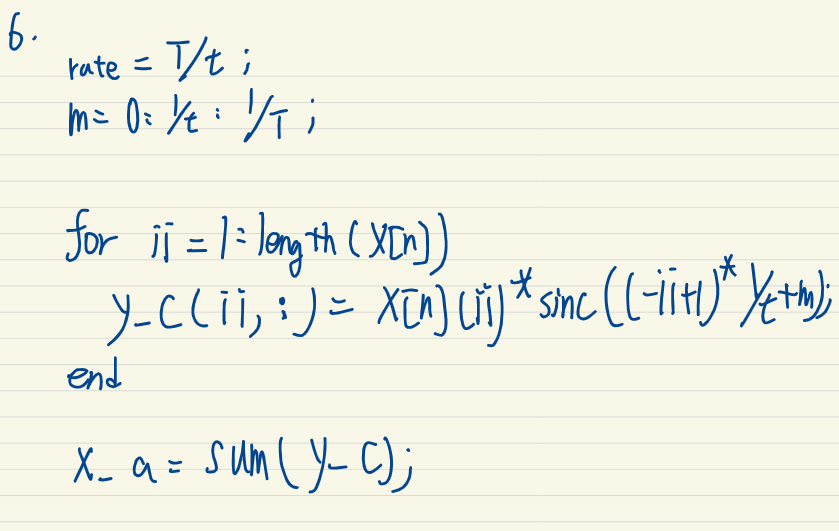 6.
rate = T/t ;
m = 0 : 1/t : 1/T ;
for ii = 1 : length (X[n])
y_c (ii, :) = X[n] (ii) * sinc ((-ii+1) * 1/t + m);
end
x_a = sum( y_c);